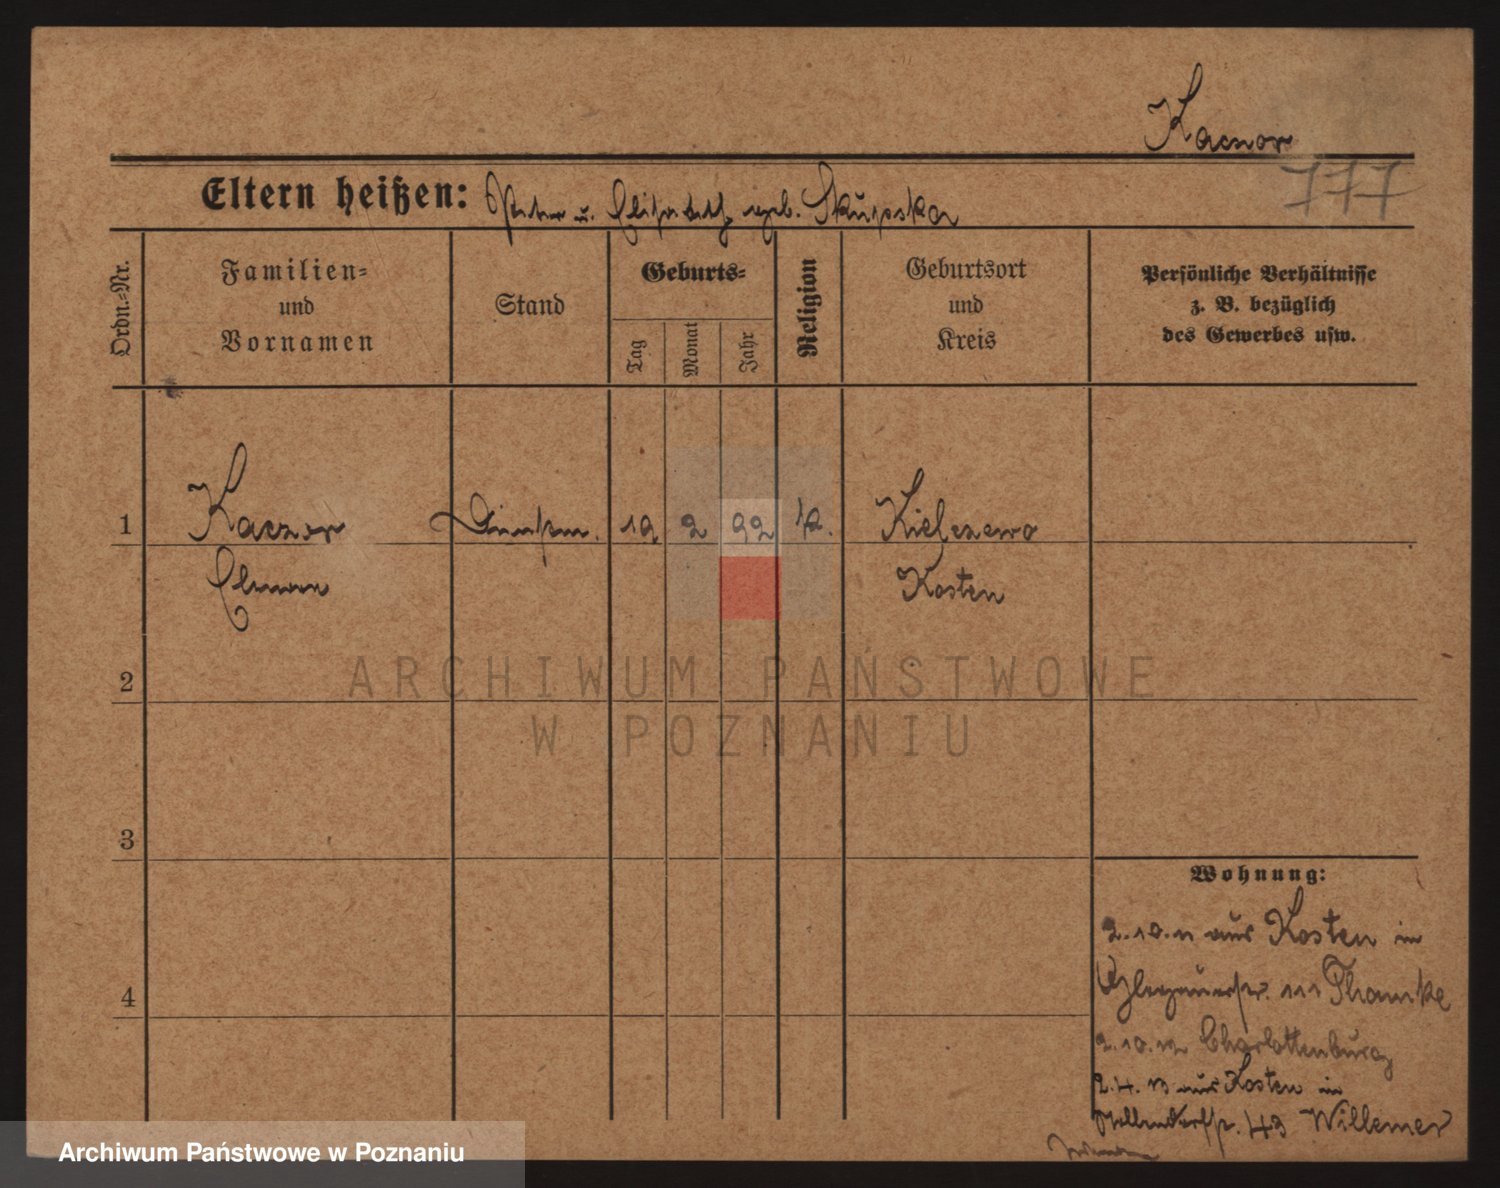 Kaczor
777
Eltern heißen: Peter u. Elisabeth geb. Skupska
Ordn.-Nr.
Familien-
und
Vornamen
Stand
Geburts-
Tag
Monat
Jahr
Religion
Geburtsort
und
Kreis
Persönliche Verhältnisse
z. B. bezüglich
des Gewerbes usw.
1 Kaczor 19 2 92 k. Kielczewo
Kosten
2
ARCHIWUM PAŃSTWOWE
W POZNANIU
3
Wohnung:
2.10.11 aus Kosten in
4
111 Thomske
2.10.12 Charlottenburg
2.4.13 aus Kosten in
43 Willemer
Archiwum Państwowe w Poznaniu